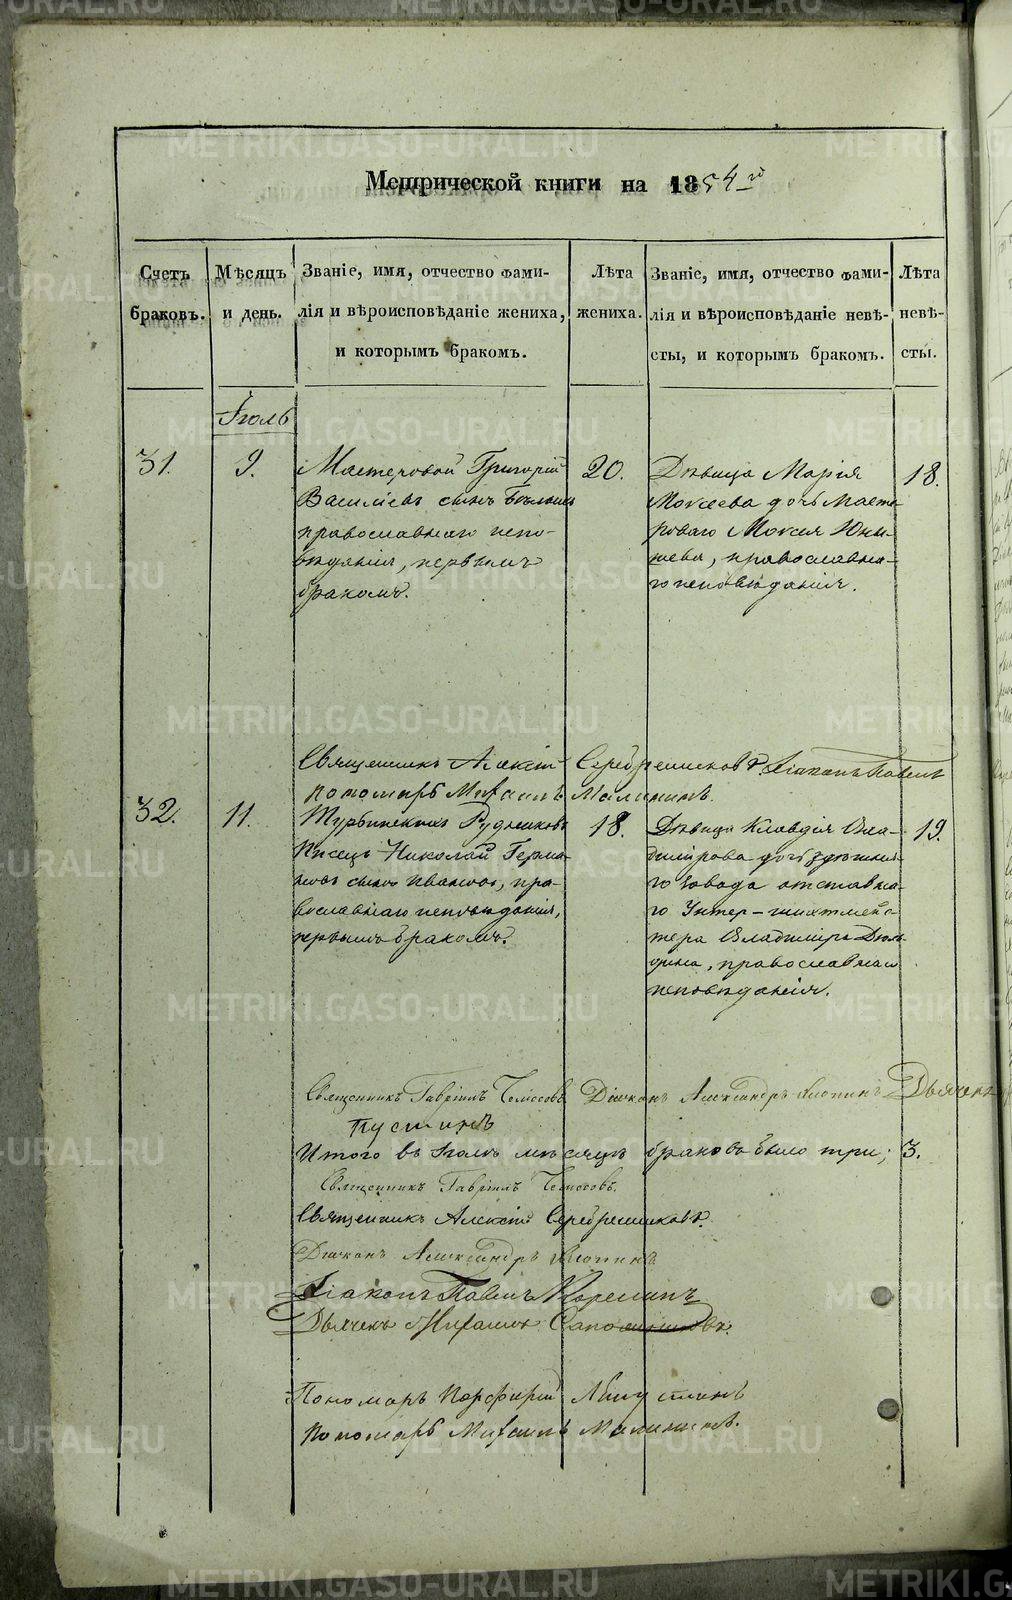 Метрической книги на 1854 го
Счетъ браковъ.
Мѣсяцъ и день.
Званіе, имя, отчество фами-
лія и вѣроисповѣданіе жениха,
и которымъ бракомъ.
Лѣта жениха.
Званіе, имя, отчество фами-
лія и вѣроисповѣданіе невѣ-
сты, и которымъ бракомъ.
Лѣта невѣ-
сты.
Іюль
31.
9.
Мастеровой Григорій
Василіевъ сынъ
православнаго испо-
вѣданія, первымъ
бракомъ.
20.
Дѣвица Марія
Моисеева дочь масте-
роваго Моисея
православна-
го исповѣданія.
18.
Священникъ Алексій Серебрениковъ. Діаконъ Павелъ
Пономарь Михаилъ Малининъ.
32.
11.
Турьинскихъ Рудниковъ
Писецъ Николай Герма-
новъ сынъ Ивановъ, пра-
вославнаго исповѣданія,
первымъ бракомъ.
18.
Дѣвица Клавдія Вла-
димірова дочь здѣшня-
го завода отставна-
го Унтер-шихтмейс-
тера Владиміра
православнаго
исповѣданія.
19.
Священникъ Гавріилъ Діаконъ Александръ Дьячекъ
Пустинъ
Итого въ Іюлѣ мѣсяцѣ браковъ было три; 3.
Священникъ Гавріилъ
Священникъ Алексій Серебрениковъ.
Діаконъ Александръ
Діаконъ Павелъ Корелинъ
Дьячекъ Михаилъ Сапожниковъ.
Пономарь Порфирій
Пономарь Михаилъ Малининъ.
METRIKI.GASO-URAL.RU